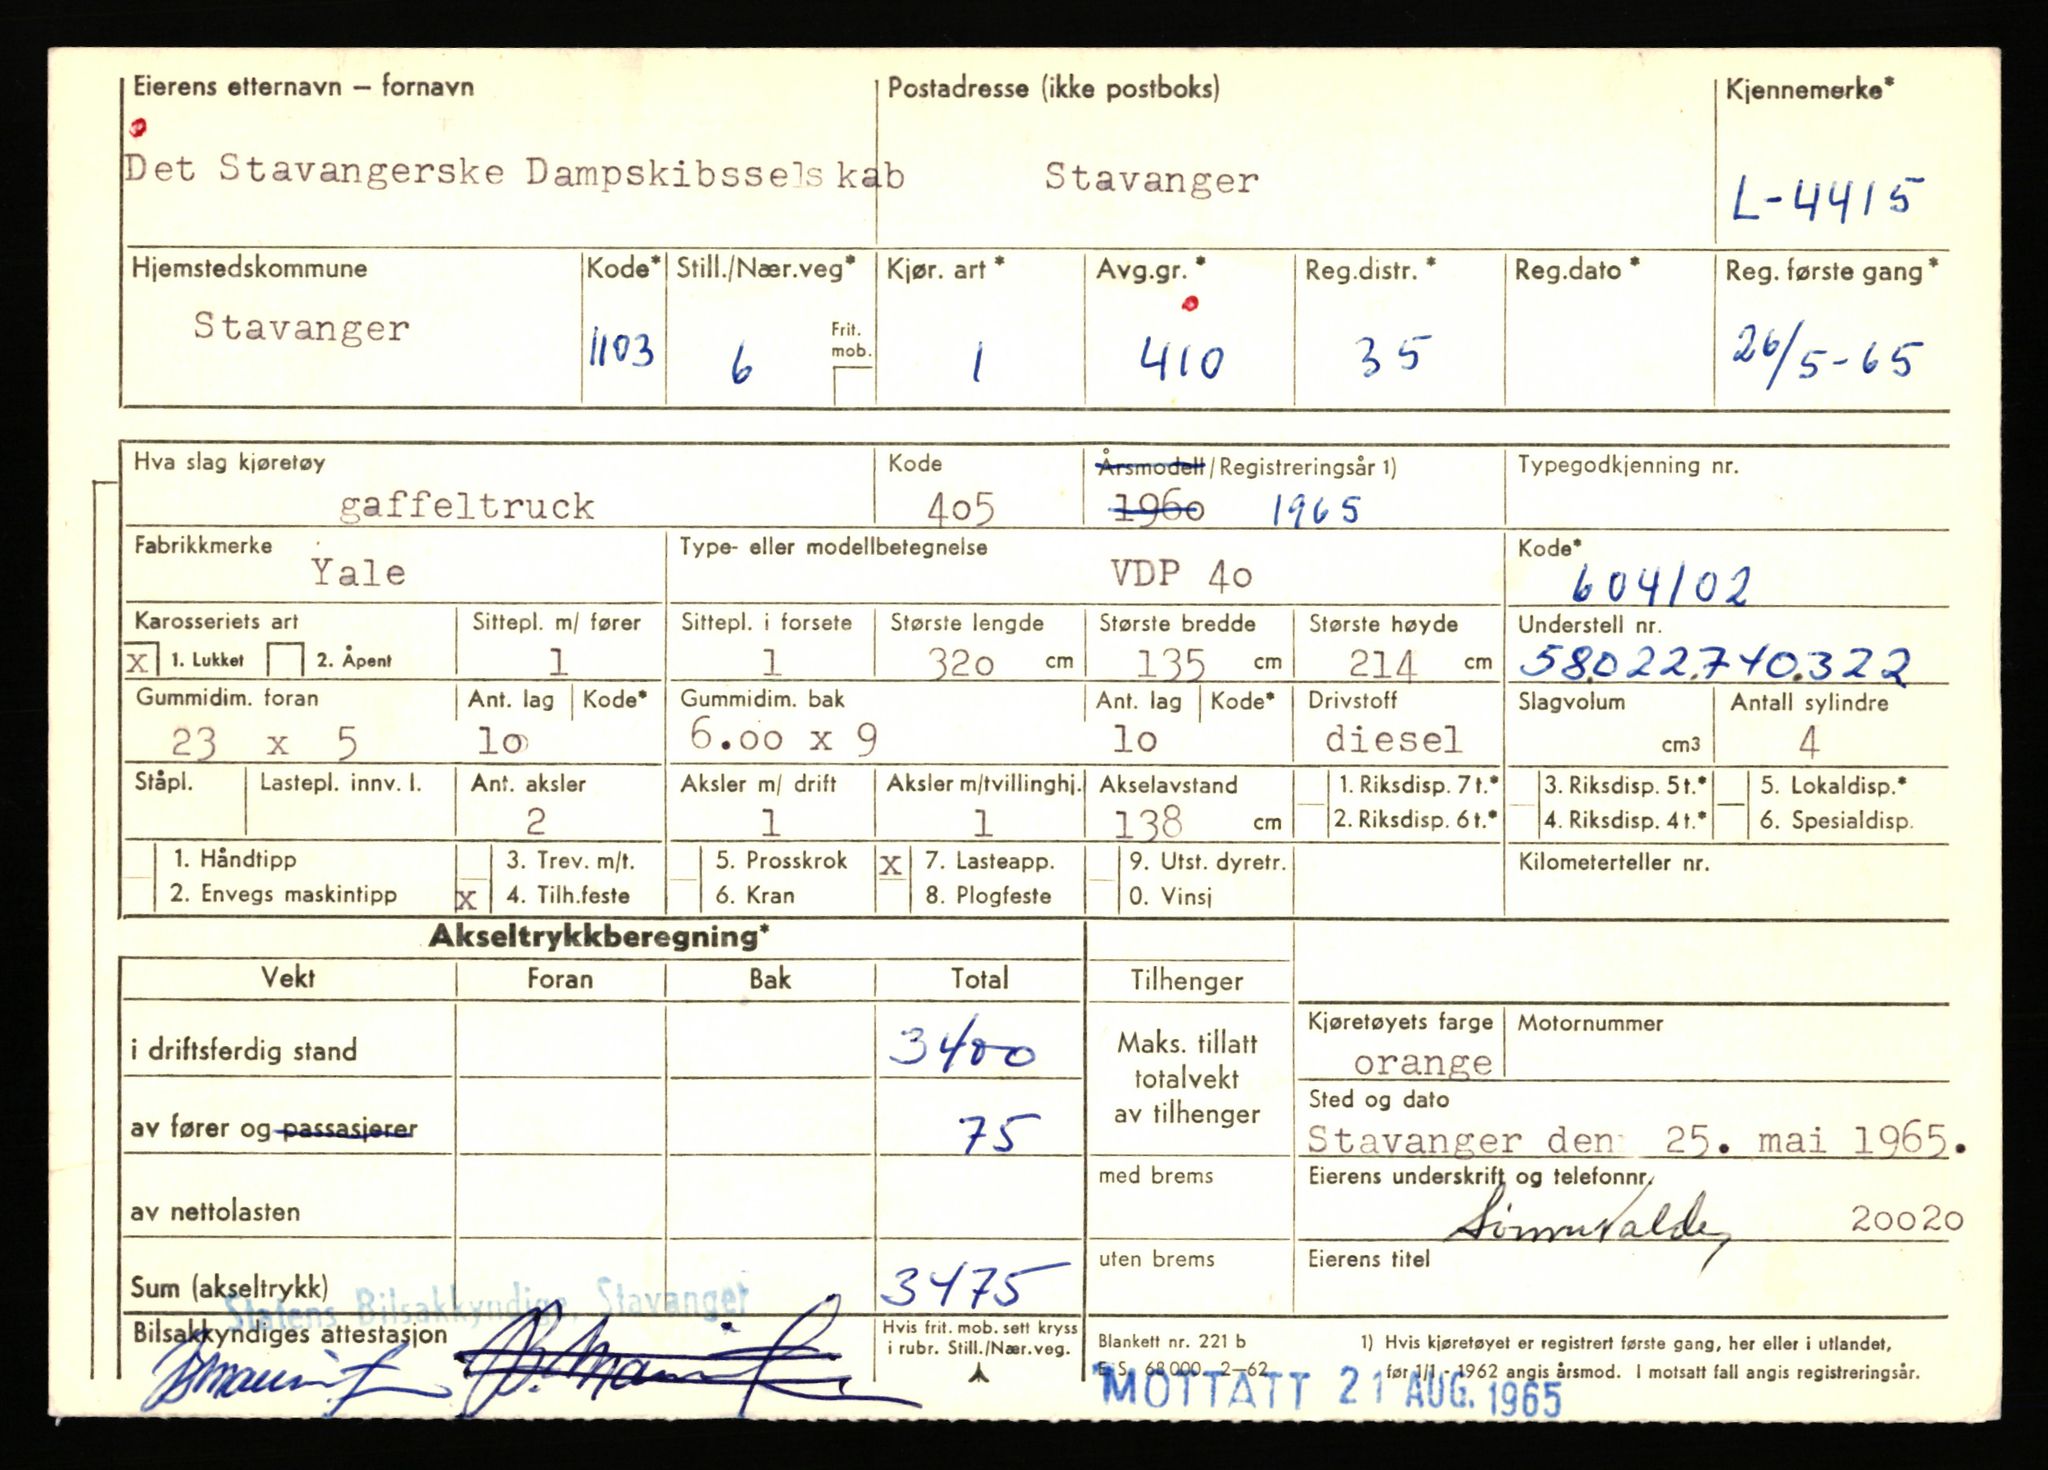 Eierens etternavn – fornavn Postadresse (ikke postboks) Kjennemerke*
Det Stavangerske Dampskibsselskab Stavanger L-4415
Hjemstedskommune Kode* Still./Nær.veg* Kjør. art* Avg.gr.* Reg.distr.* Reg.dato* Reg. første gang*
Stavanger 1103 6 Frit. mob. 1 410 35 26/5-65
Hva slag kjøretøy Kode Årsmodell/Registreringsår 1) Typegodkjenning nr.
gaffeltruck 405 1960 1965
Fabrikkmerke Type- eller modellbetegnelse Kode*
Yale VDP 40 604102
Karosseriets art Sittepl. m/ fører Sittepl. i forsete Største lengde Største bredde Største høyde Understell nr.
x 1. Lukket 2. Åpent 1 1 320 cm 135 cm 214 cm 58.022.740.322
Gummidim. foran Ant. lag Kode* Gummidim. bak Ant. lag Kode* Drivstoff Slagvolum Antall sylindre
23 x 5 10 6.00 x 9 10 diesel cm3 4
Ståpl. Lastepl. innv. l. Ant. aksler Aksler m/ drift Aksler m/tvillinghj. Akselavstand 1. Riksdisp. 7 t.* 3. Riksdisp. 5 t.* 5. Lokaldisp.*
2 1 1 138 cm 2. Riksdisp. 6 t.* 4. Riksdisp. 4 t.* 6. Spesialdisp.
1. Håndtipp 3. Trev. m/t. 5. Prosskrok x 7. Lasteapp. 9. Utst. dyretr. Kilometerteller nr.
2. Envegs maskintipp x 4. Tilh.feste 6. Kran 8. Plogfeste 0. Vinsj
Akseltrykkberegning*
Vekt Foran Bak Total Tilhenger
i driftsferdig stand 3400
av fører og passasjerer 75
av nettolasten
Sum (akseltrykk) 3475
Maks. tillatt
totalvekt
av tilhenger
med brems
uten brems
Kjøretøyets farge Motornummer
orange
Sted og dato
Stavanger den 25. mai 1965.
Eierens underskrift og telefonnr.
20020
Eierens titel
Statens Bilsakkyndige, Stavanger
Bilsakkyndiges attestasjon
Hvis frit. mob. sett kryss
i rubr. Still./Nær.veg.
Blankett nr. 221 b
E. S. 68 000. 2–62
1) Hvis kjøretøyet er registrert første gang, her eller i utlandet,
før 1/1 - 1962 angis årsmod. I motsatt fall angis registreringsår.
MOTTATT 21 AUG. 1965